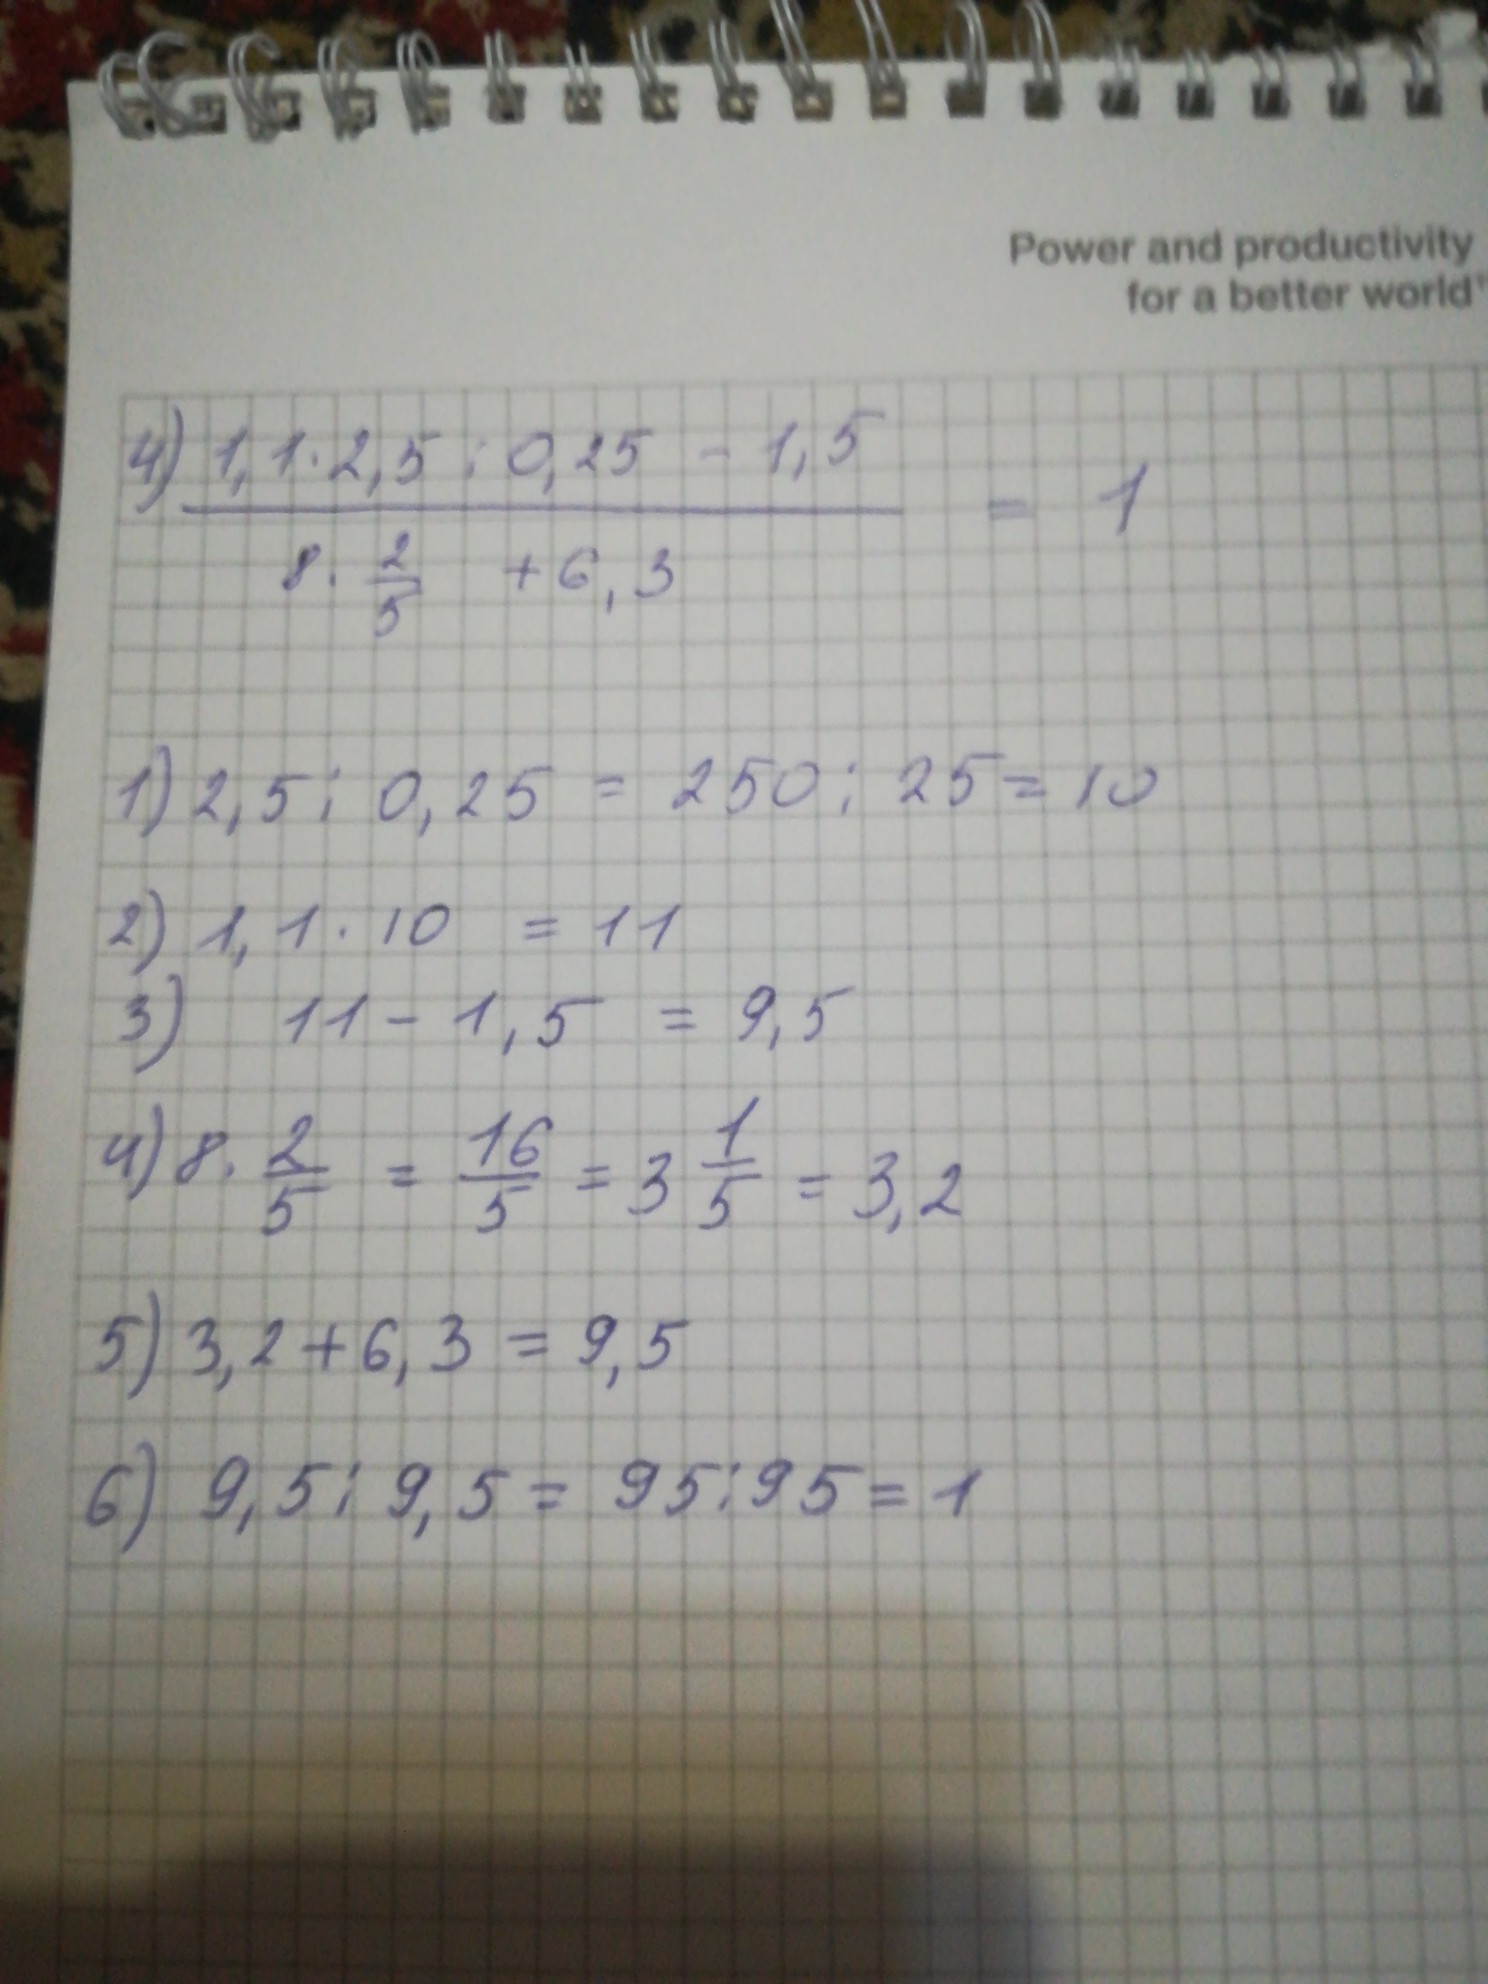 Power and productivity
for a better world™
4) 1,1 · 2,5 : 0,25 - 1,5
8 · 2/5 + 6,3
= 1
1) 2,5 : 0,25 = 250 : 25 = 10
2) 1,1 · 10 = 11
3) 11 - 1,5 = 9,5
4) 8 · 2/5 = 16/5 = 3 1/5 = 3,2
5) 3,2 + 6,3 = 9,5
6) 9,5 : 9,5 = 95 : 95 = 1